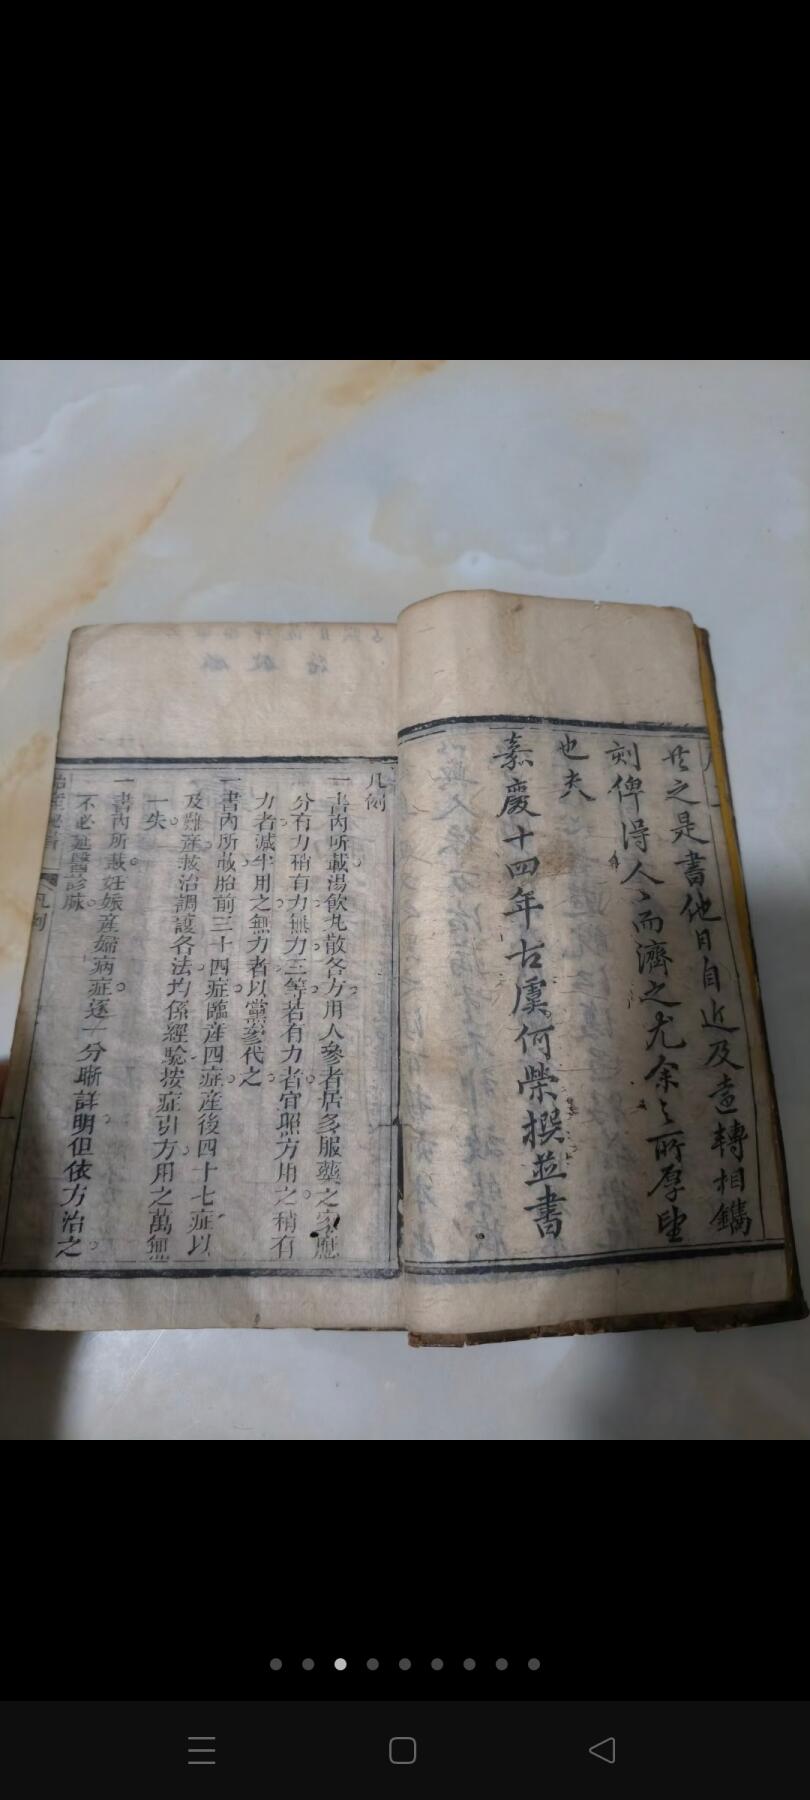 世之是書他日自近及遠轉相鐫
刻俾得人人而濟之尤余之所厚望
也夫
嘉慶十四年古虞何榮撰並書
凡例
一書內所載湯飲丸散各方用人參者居多服藥之家應
分有力稍有力無力三等若有力者宜照方用之稍有
力者減半用之無力者以黨參代之
一書內所載胎前三十四症臨產四症產後四十七症以
及難產救治調護各法均係經驗按症引方用之萬無
一失
一書內所載妊娠產婦病症逐一分晰詳明但依方治之
不必延醫診脉
凡例